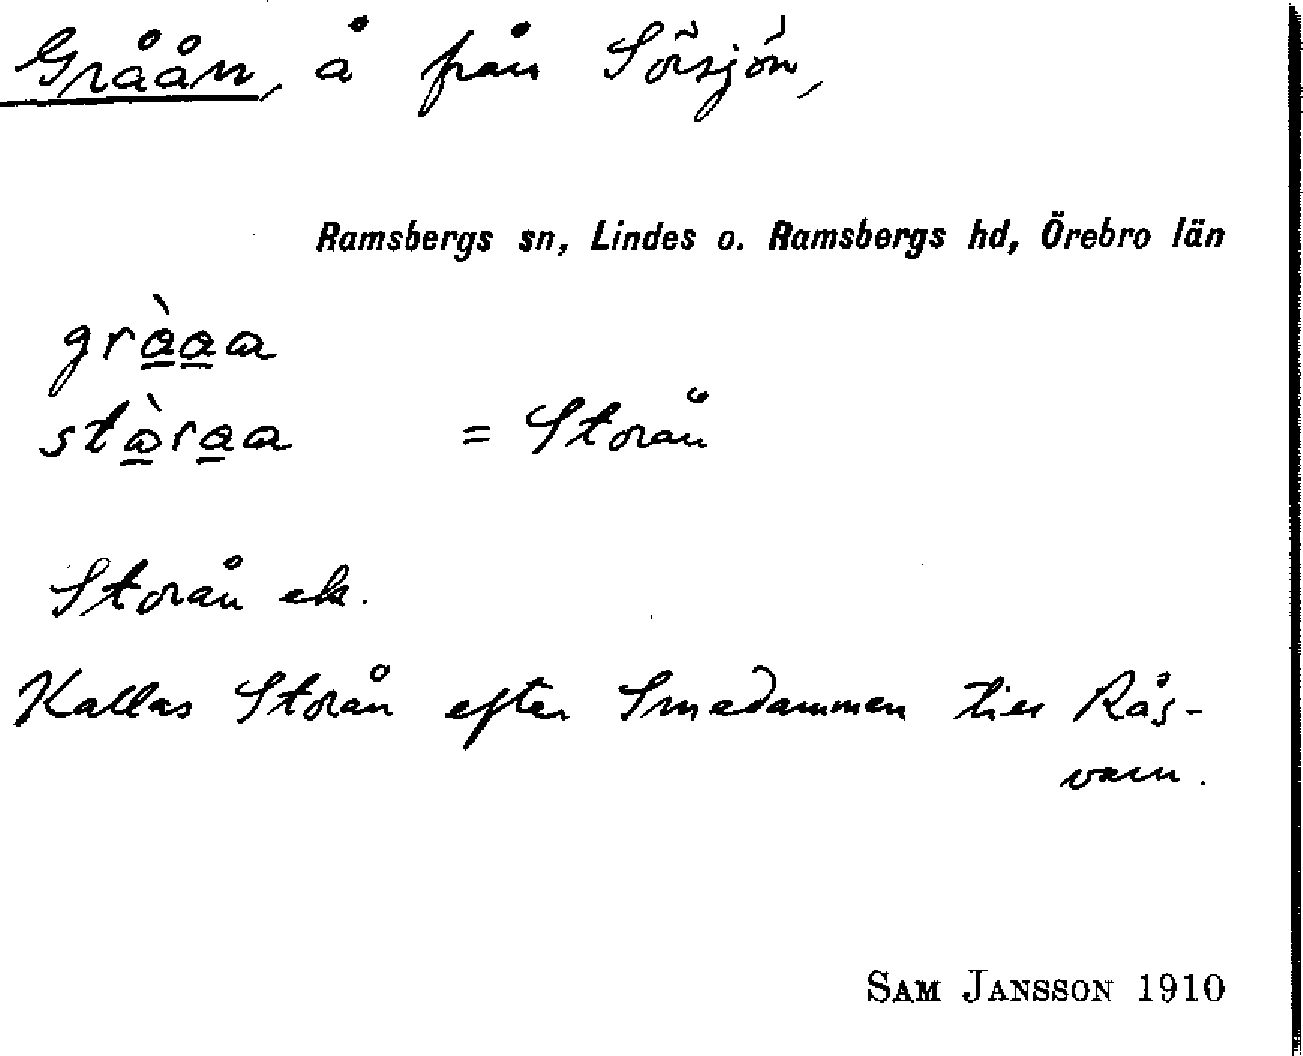 Gråån, å från Sörsjön,
Ramsbergs sn, Lindes o. Ramsbergs hd, Örebro län
gràaa
stàraa = Storån
Storån ek.
Kallas Storån efter Smedammen till Rås-
valn.
SAM JANSSON 1910